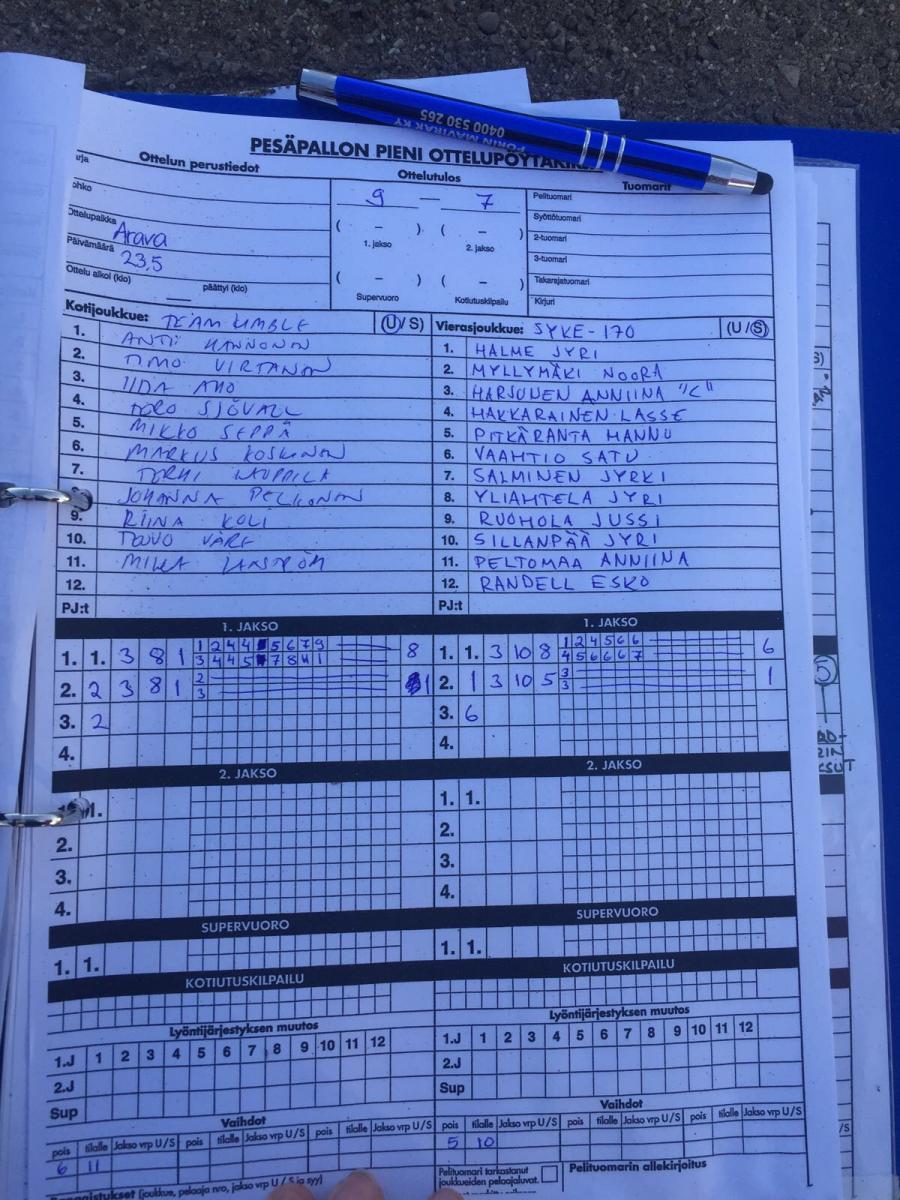 PORIN MAVIRAK KY
0400 530 265
PESÄPALLON PIENI OTTELUPÖYTÄKIR
Ottelun perustiedot
Ottelupaikka Arava
Päivämäärä 23.5
Ottelu alkoi (klo) päättyi (klo)
Ottelutulos
9 — 7
( – ) ( – )
1. jakso 2. jakso
( – ) ( – )
Supervuoro Kotiutuskilpailu
Tuomarit
Pelituomari
Syöttötuomari
2-tuomari
3-tuomari
Takarajatuomari
Kirjuri
Kotijoukkue: TEAM KIMBLE (U / S)
1. ANTTI HANNONEN
2. TIMO VIRTANEN
3. IIDA AHO
4. TERO SJÖVALL
5. MIKKO SEPPÄ
6. MARKUS KOSKINEN
7. TERHI KAUPPILA
JOHANNA PELKONEN
9. RIINA KOLI
10. TEUVO
11. MIKA
12.
PJ:t
Vierasjoukkue: SYKE-170 (U / S)
1. HALME JYRI
2. MYLLYMÄKI NOORA
3. HARSUNEN ANNIINA "C"
4. HAKKARAINEN LASSE
5. PITKÄRANTA HANNU
6. VAAHTIO SATU
7. SALMINEN JYRKI
8. YLIAHTELA JYRI
9. RUOHOLA JUSSI
10. SILLANPÄÄ JYRI
11. PELTOMAA ANNIINA
12. RANDELL ESKO
PJ:t
1. JAKSO
1. 1. 3 8 1 1 2 4 4 5 6 7 9 8
3 4 4 5 7 8 11 1
2. 2 3 8 1 2 1
3
3. 2
4.
1. JAKSO
1. 1. 3 10 8 1 2 4 5 6 6 6
4 5 6 6 6 7
2. 1 3 10 5 3 1
3
3. 6
4.
2. JAKSO
1.
2.
3.
4.
2. JAKSO
1. 1.
2.
3.
4.
SUPERVUORO
1. 1.
SUPERVUORO
1. 1.
KOTIUTUSKILPAILU
KOTIUTUSKILPAILU
Lyöntijärjestyksen muutos
1.J 1 2 3 4 5 6 7 8 9 10 11 12
2.J
Sup
Lyöntijärjestyksen muutos
1.J 1 2 3 4 5 6 7 8 9 10 11 12
2.J
Sup
Vaihdot
pois tilalle Jakso vrp U/S pois tilalle Jakso vrp U/S pois tilalle Jakso vrp U/S
6 11
Vaihdot
pois tilalle Jakso vrp U/S pois tilalle Jakso vrp U/S pois tilalle Jakso vrp U/S
5 10
(joukkue, pelaaja nro, jakso vrp U / S ja syy)
Pelituomari tarkastanut
joukkueiden pelaajaluvat.
Pelituomarin allekirjoitus